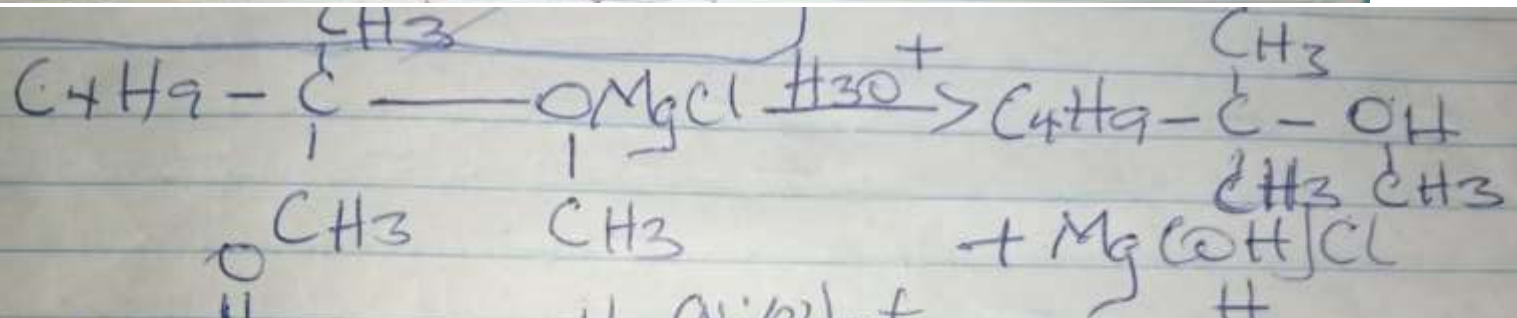 CH3 CH3
C4H9 - C — OMgCl H3O+ > C4H9 - C - OH
CH3 CH3 CH3 CH3
+ Mg(OH)Cl
O
H